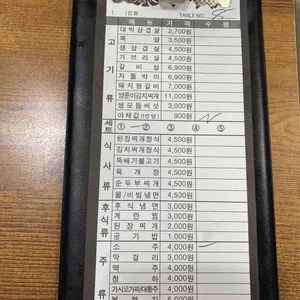 인원 TABLE NO.
메뉴 가격 수량
고기류
대박삼겹살 2,700원
목살 3,500원
생삼겹살 4,500원
가브리살 4,500원
갈비살 6,900원
차돌박이 6,900원
돼지왕갈비 7,000원
양푼이김치찌개 11,000원
생모듬버섯 3,000원
야채값(1인당) 900원
세트 ① ② ③ ④ ⑤
식사류
된장찌개정식 4,500원
김치찌개정식 4,500원
뚝배기불고기 4,500원
육개장 4,500원
순두부찌개 4,500원
물/비빔냉면 4,500원
후식류
후식냉면 3,000원
계란찜 3,000원
된장찌개 2,000원
공기밥 1,000원
주류
소주 4,000원
막걸리 3,000원
맥주 4,000원
청하 4,000원
가시오가피/대통주 4,000원
복분자 5,000원